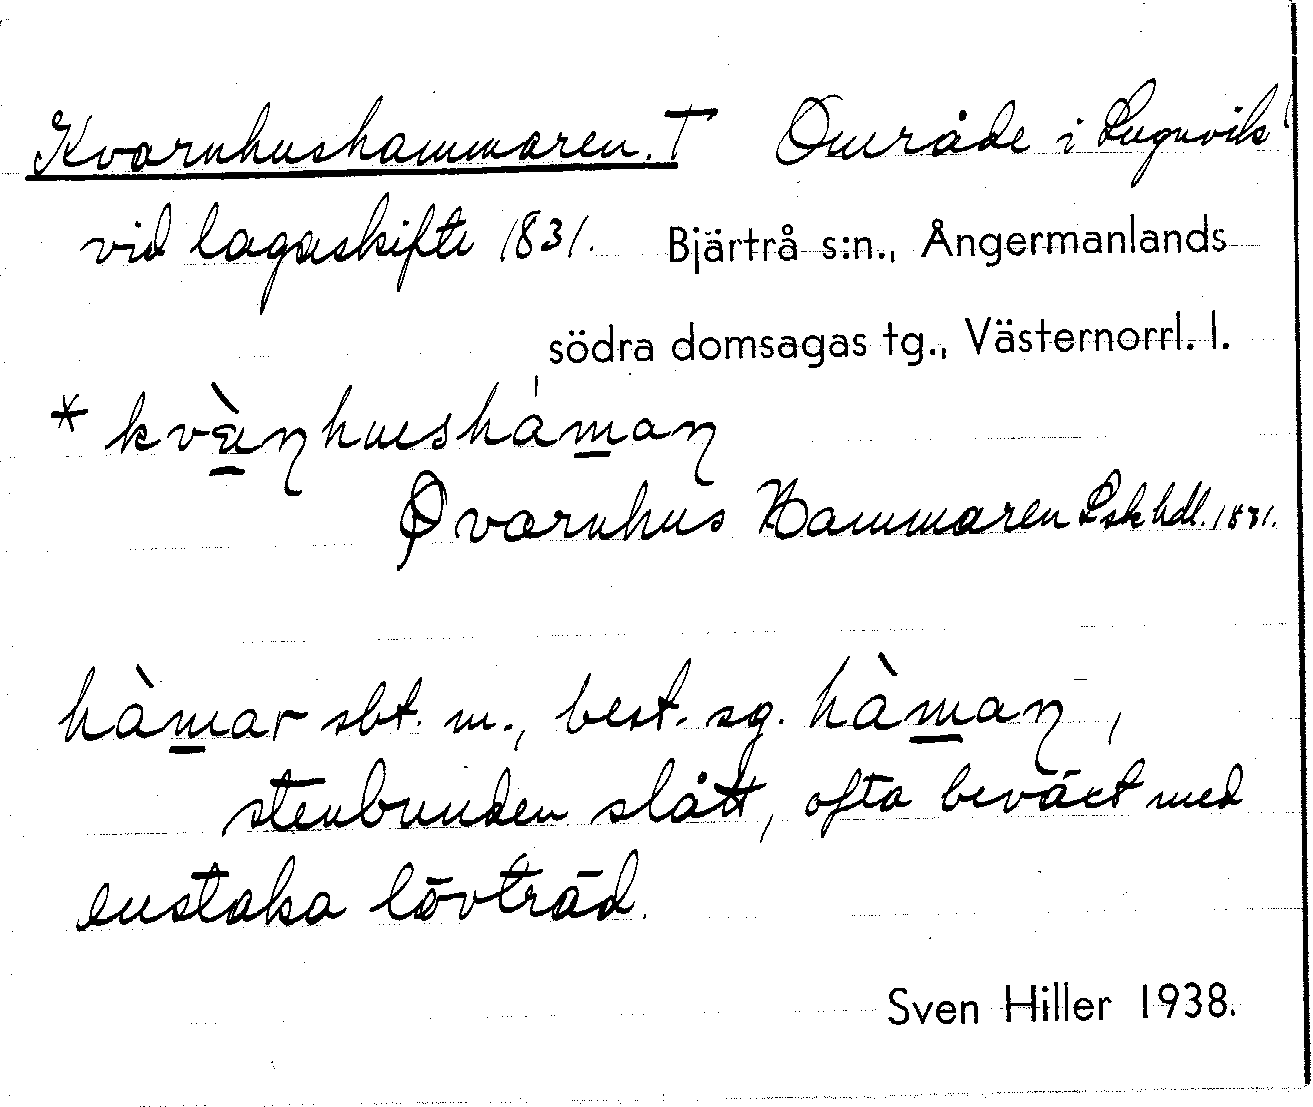 Kvarnhushammaren. † Område i Lugnvik
vid lagaskifte 1831. Bjärtrå s:n., Ångermanlands
södra domsagas tg., Västernorrl. l.
* kvàn̲hushàm̲aɳ
Qvarnhus Hammaren Lsk hdl. 1831.
hàm̲ar sbt. m., best. sg. hàm̲aɳ,
stenbunden slått, ofta beväxt med
enstaka lövträd.
Sven Hiller 1938.